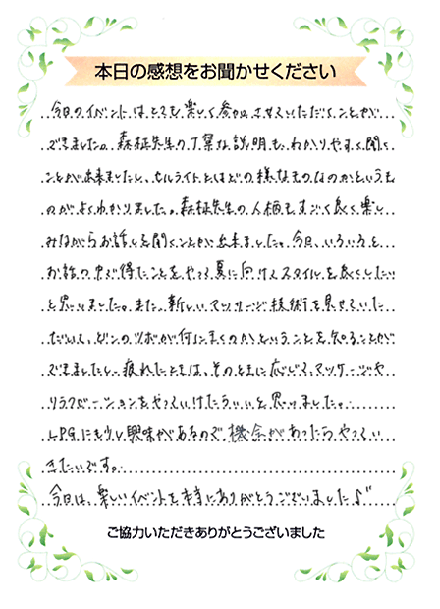 本日の感想をお聞かせください
今日のイベントは、とても楽しく参加させていただくことが
できました。森柾先生の丁寧な説明も、わかりやすく聞く
ことが出来ましたし、セルライトとはどの様なものなのかというも
のがよくわかりました。森柾先生の人柄もすごく良く楽し
みながらお話しを聞くことが出来ました。今日、いろいろと
お話の中で得たことをやって夏に向けてスタイルを良くしたい
と思いました。また、新しいマッサージ技術を見せていた
だいて、どこのツボが何にきくのかということを知ることが
できましたし、疲れたときは、そのときに応じて、マッサージや
リラクゼーションをやっていけたらいいと思いました。
LPGにも少し興味があるので、機会があったらやってい
きたいです。
今日は、楽しいイベントを本当にありがとうございました♪
ご協力いただきありがとうございました